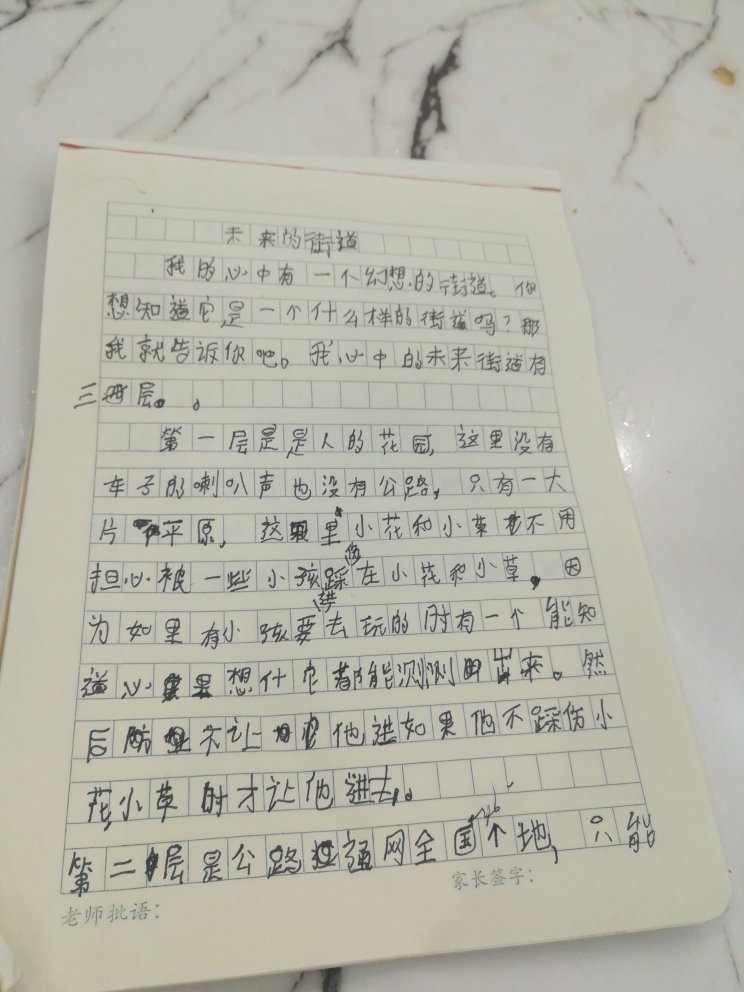 未来的街道
我的心中有一个幻想的街道。你
想知道它是一个什么样的街道吗？那
我就告诉你吧。我心中的未来街道有
三层。。
第一层是是人的花园，这里没有
车子的喇叭声也没有公路，只有一大
片平原，这里小花和小草也不用
担心被一些小孩踩伤在小花和小草，因
为如里有小孩要进去玩的时有一个能知
道心里想什它都能测测出来。然
后不让他进如果他不踩伤小
花，小草时才让他进去，。
第二层是公路通网全国个地，只能
老师批语：
家长签字：